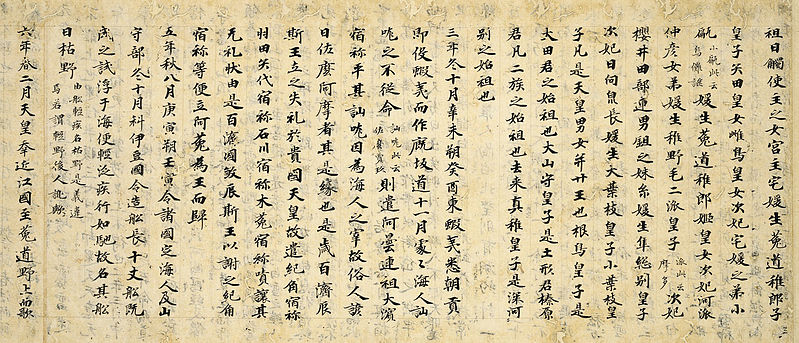 祖日觸使主之女宮主宅媛生菟道稚郎子
皇子矢田皇女雌鳥皇女次妃宅媛之弟小
甂小甂此云烏儺謎媛生菟道稚郎姬皇女次妃河派
仲彥女弟媛生稚野毛二派皇子派此云摩多次妃
櫻井田部連男鉏之妹糸媛生隼総別皇子
次妃日向泉長媛生大葉枝皇子小葉枝皇
子凡是天皇男女并廿王也根鳥皇子是
大田君之始祖也大山守皇子是土形君榛原
君凡二族之始祖也去来真稚皇子是深河
別之始祖也
三年冬十月辛未朔癸酉東蝦夷悉朝貢
即役蝦夷而作厩坂道十一月處〻海人訕
哤之不従命訕哤此云佐麼賣玖則遣阿曇連祖大濱
宿祢平其訕哤因為海人之宰故俗人諺
曰佐麼阿摩者其是緣也是歲百濟辰
斯王立之失礼於貴國天皇故遣紀角宿祢
羽田矢代宿祢石川宿祢木菟宿祢嘖讓其
无礼狀由是百濟國敦辰斯王以謝之紀角
宿祢等便立阿菀為王而歸
五年秋八月庚寅朔壬寅令諸國定海人及山
守部冬十月科伊豆國令造舩長十丈舩既
成之試浮于海便輕泛疾行如馳故名其舩
曰枯野由舩輕疾名枯野是義違焉若謂輕野後人訛歟
六年春二月天皇幸近江國至菟道野上而歌